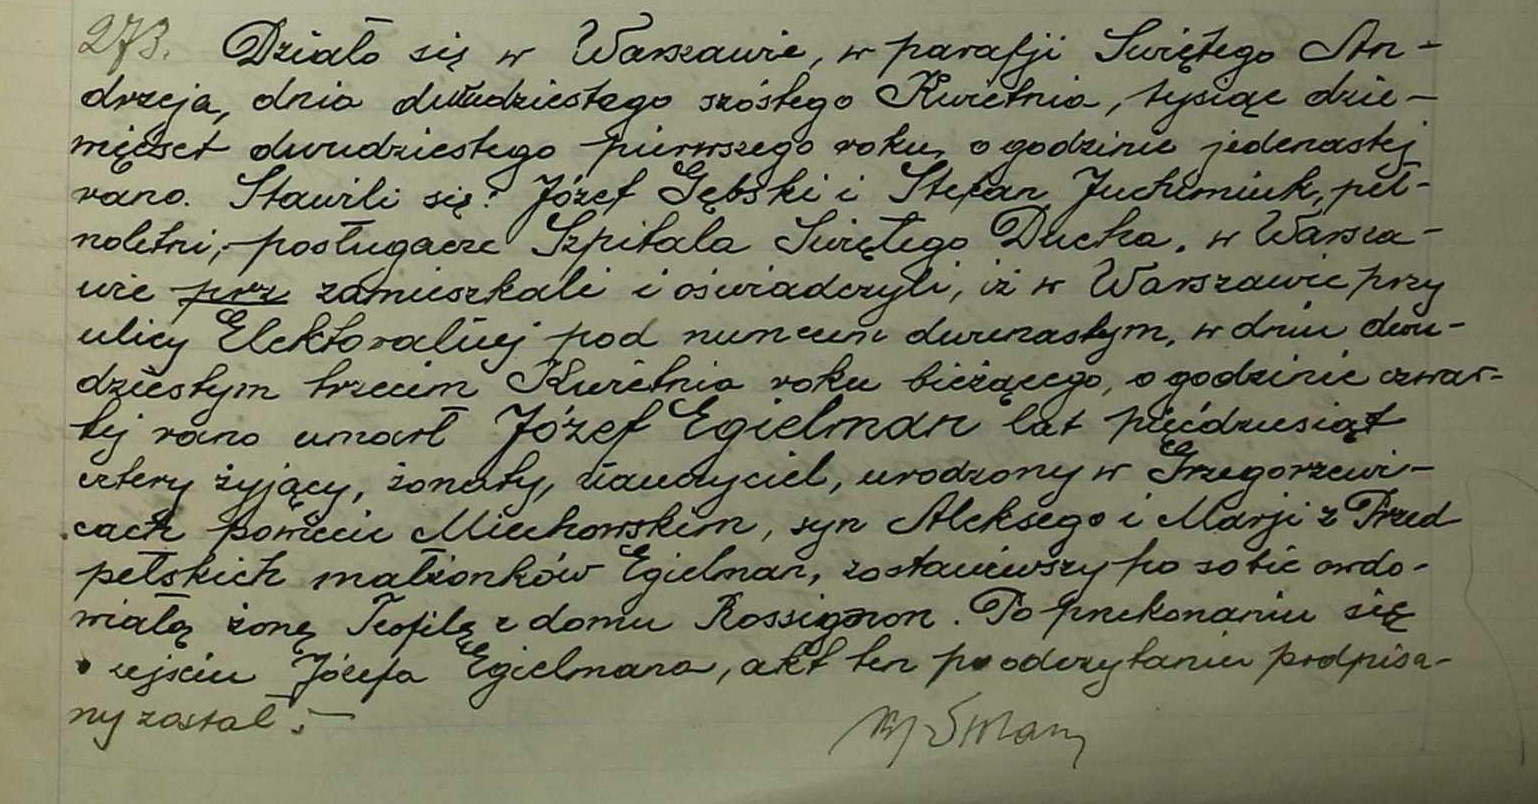 273. Działo się w Warszawie, w parafji Świętego An-
drzeja, dnia dwudziestego szóstego Kwietnia, tysiąc dzie-
więćset dwudziestego pierwszego roku, o godzinie jedenastej
rano. Stawili się: Józef Gębski i Stefan Juchimiuk, peł-
noletni, posługacze Szpitala Świętego Ducha, w Warsza-
wie prz zamieszkali i oświadczyli, iż w Warszawie przy
ulicy Elektoralnej pod numerem dwunastym, w dniu dwu-
dziestym trzecim Kwietnia roku bieżącego, o godzinie czwar-
tej rano umarł Józef Egielman lat pięćdziesiąt
cztery żyjący, żonaty, nauczyciel, urodzony w Grzegorzewi-
cach powiecie Miechowskim, syn Aleksego i Marji z Przed
pełskich małżonków Egielman, zostawiwszy po sobie owdo-
wiałą żonę Teofilę z domu Rossignon. Po przekonaniu się
o zejściu Józefa Egielmana, akt ten po odczytaniu podpisa-
ny został.—